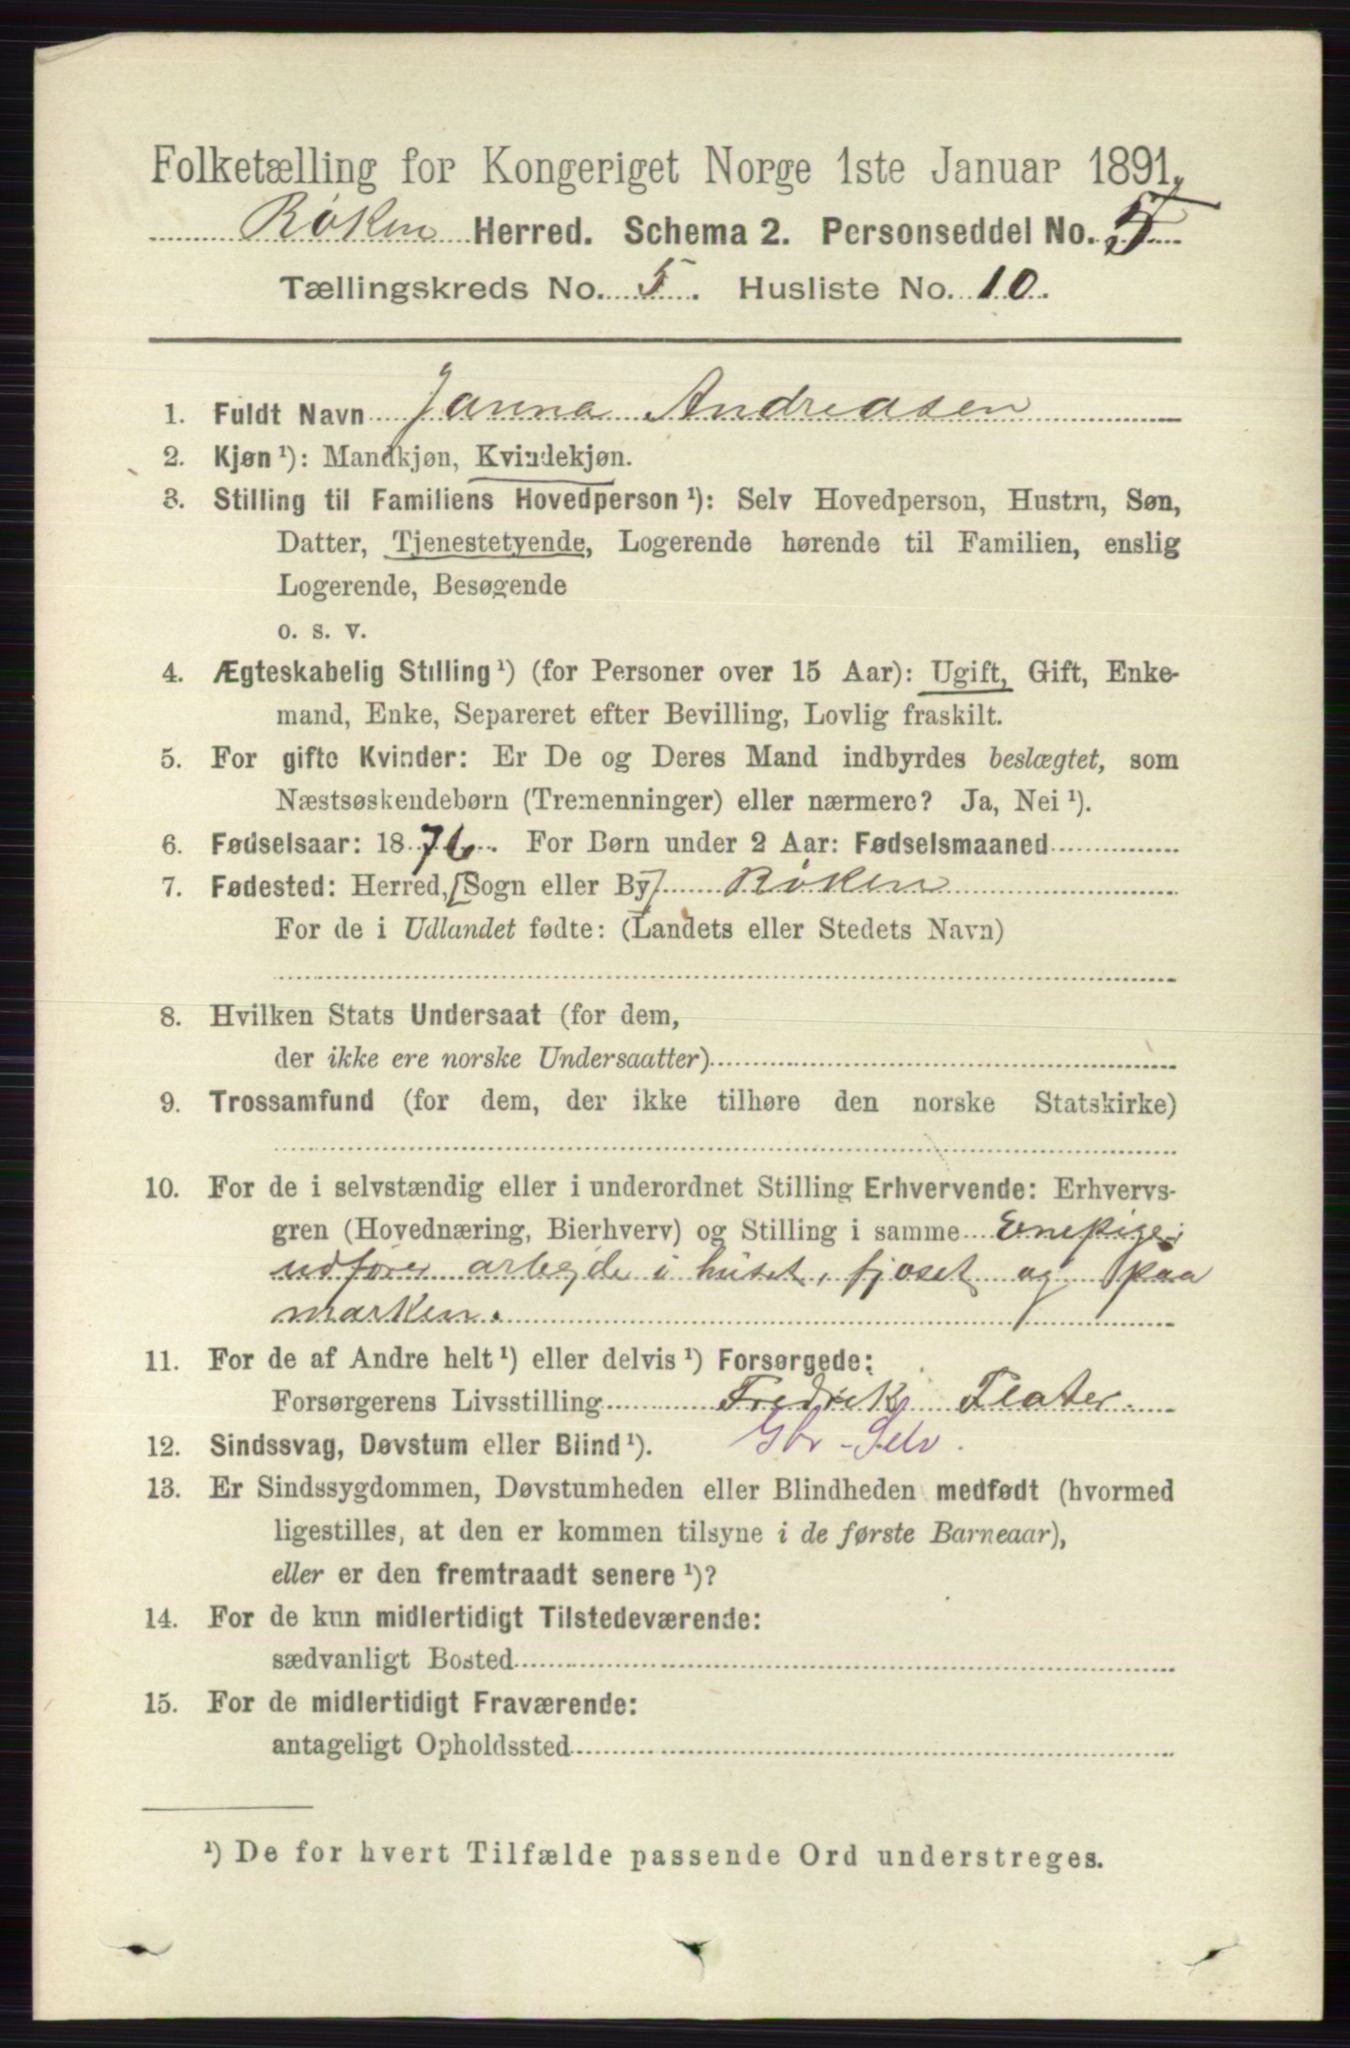 Folketælling for Kongeriget Norge 1ste Januar 1891.
Røken Herred. Schema 2. Personseddel No. 5
Tællingskreds No. 5. Husliste No. 10.
1. Fuldt Navn Janna Andreasen
2. Kjøn ¹): Mandkjøn, Kvindekjøn.
3. Stilling til Familiens Hovedperson ¹): Selv Hovedperson, Hustru, Søn,
Datter, Tjenestetyende, Logerende hørende til Familien, enslig
Logerende, Besøgende
o. s. v.
4. Ægteskabelig Stilling ¹) (for Personer over 15 Aar): Ugift, Gift, Enke-
mand, Enke, Separeret efter Bevilling, Lovlig fraskilt.
5. For gifte Kvinder: Er De og Deres Mand indbyrdes beslægtet, som
Næstsøskendebørn (Tremenninger) eller nærmere? Ja, Nei ¹).
6. Fødselsaar: 1876. For Børn under 2 Aar: Fødselsmaaned
7. Fødested: Herred, [Sogn eller By] Røken
For de i Udlandet fødte: (Landets eller Stedets Navn)
8. Hvilken Stats Undersaat (for dem,
der ikke ere norske Undersaatter)
9. Trossamfund (for dem, der ikke tilhøre den norske Statskirke)
10. For de i selvstændig eller i underordnet Stilling Erhvervende: Erhvervs-
gren (Hovednæring, Bierhverv) og Stilling i samme Enepige;
udfører arbejde i huset, fjøset og paa
marken.
11. For de af Andre helt ¹) eller delvis ¹) Forsørgede:
Forsørgerens Livsstilling Fredrik Flater.
Gbr - Selv.
12. Sindssvag, Døvstum eller Blind ¹).
13. Er Sindssygdommen, Døvstumheden eller Blindheden medfødt (hvormed
ligestilles, at den er kommen tilsyne i de første Barneaar),
eller er den fremtraadt senere ¹)?
14. For de kun midlertidigt Tilstedeværende:
sædvanligt Bosted
15. For de midlertidigt Fraværende:
antageligt Opholdssted
¹) De for hvert Tilfælde passende Ord understreges.